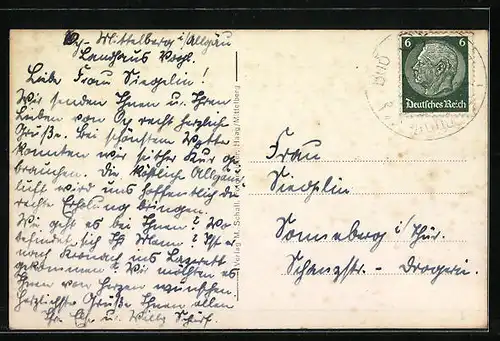 Oy-Mittelberg i/Allgäu
Landhaus Vogl.
Liebe Frau Siegelin!
Wir senden Ihnen u. Ihren
Lieben von Oy recht herzliche
Grüße. Bei schönstem Wetter
konnten wir bisher Kur ge-
brauchen. Die köstliche Allgäuer
luft wird uns hoffentlich die
rechte Erholung bringen.
Wie geht es bei Ihnen? Wo
befindet sich Ihr Mann? Ist er
nach Kronach ins Lazarett
gekommen? Wir möchten es
Ihnen von Herzen wünschen.
Herzlichste Grüße Ihnen allen
Ihre u. Willy
Verlag M. Schall
Haag/Mittelberg
6 6
Deutsches Reich
Frau
Siegelin
Sonneberg i/Thür.
Schanzstr. - Drogerie.